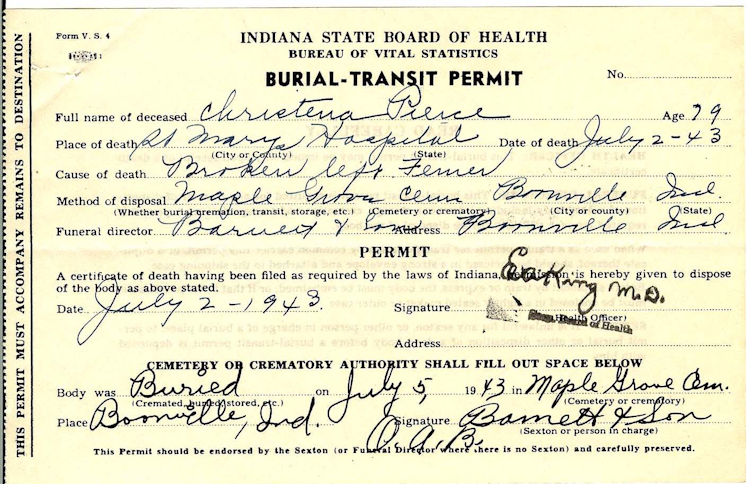 Form V. S. 4
INDIANA STATE BOARD OF HEALTH
BUREAU OF VITAL STATISTICS
BURIAL-TRANSIT PERMIT
No.
Full name of deceased Christena Pierce Age 79
Place of death St Marys Hospital Date of death July 2-43
(City or County) (State)
Cause of death Broken left Femer
Method of disposal Maple Grove Cem Boonville Ind
(Whether burial, cremation, transit, storage, etc.) (Cemetery or crematory) (City or county) (State)
Funeral director Barnett & Son Address Boonville Ind
PERMIT
A certificate of death having been filed as required by the laws of Indiana, permission is hereby given to dispose
of the body as above stated.
Date July 2-1943. Signature King M.D.
(Health Officer)
Board of Health
Address
CEMETERY OR CREMATORY AUTHORITY SHALL FILL OUT SPACE BELOW
Body was Buried on July 5, 1943 in Maple Grove Cem.
(Cremated, buried, stored, etc.) (Cemetery or crematory)
Place Boonville, Ind. Signature Barnett & Son
(Sexton or person in charge)
O.A.B.
This Permit should be endorsed by the Sexton (or Funeral Director where there is no Sexton) and carefully preserved.
THIS PERMIT MUST ACCOMPANY REMAINS TO DESTINATION